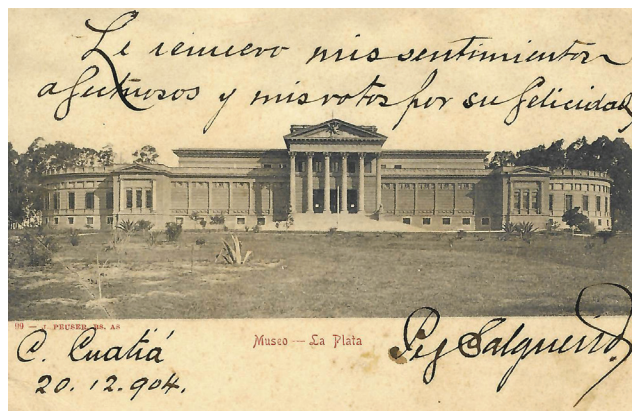 Le renuevo mis sentimientos
afectuosos y mis votos por su felicidad
99 — J. PEUSER, BS. AS
Museo — La Plata
C. Cuatiá
20.12.904.
Salguero